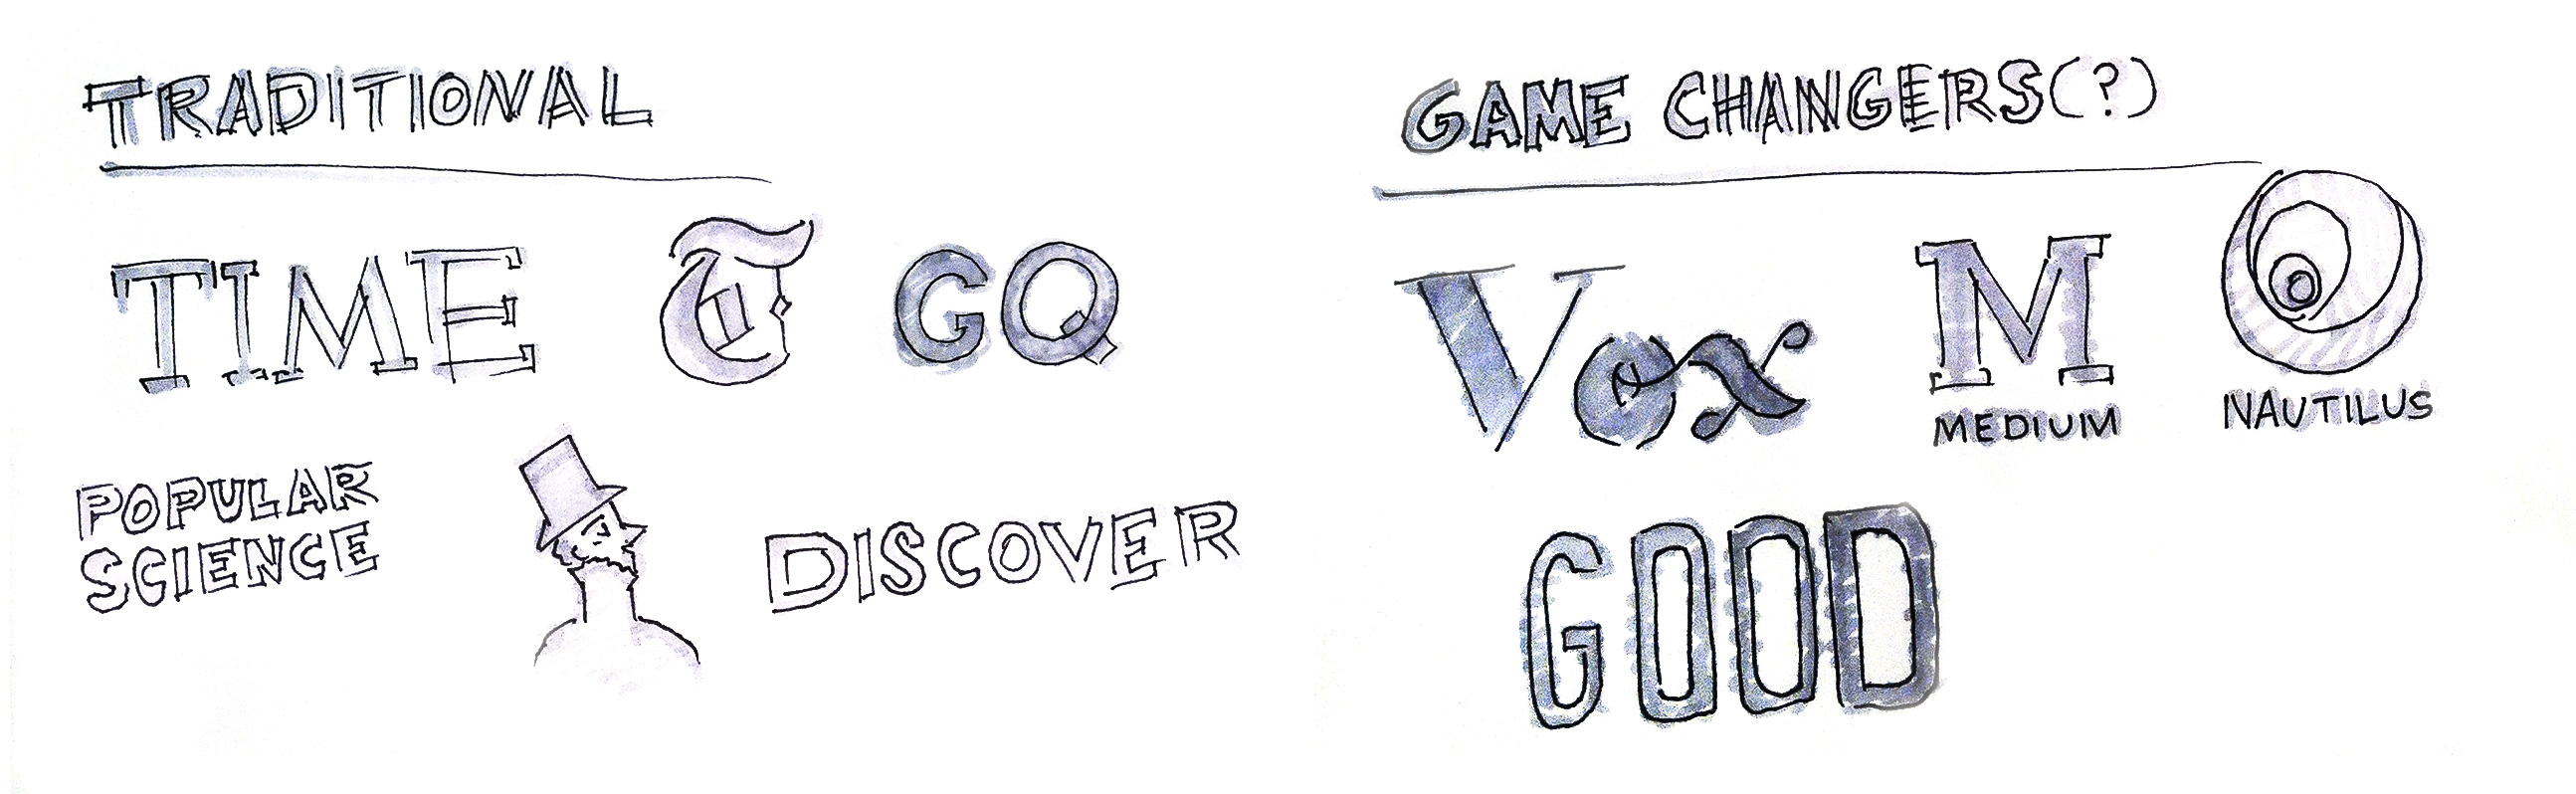 TRADITIONAL
TIME T GQ
POPULAR
SCIENCE
DISCOVER
GAME CHANGERS(?)
Vox M
MEDIUM
NAUTILUS
GOOD